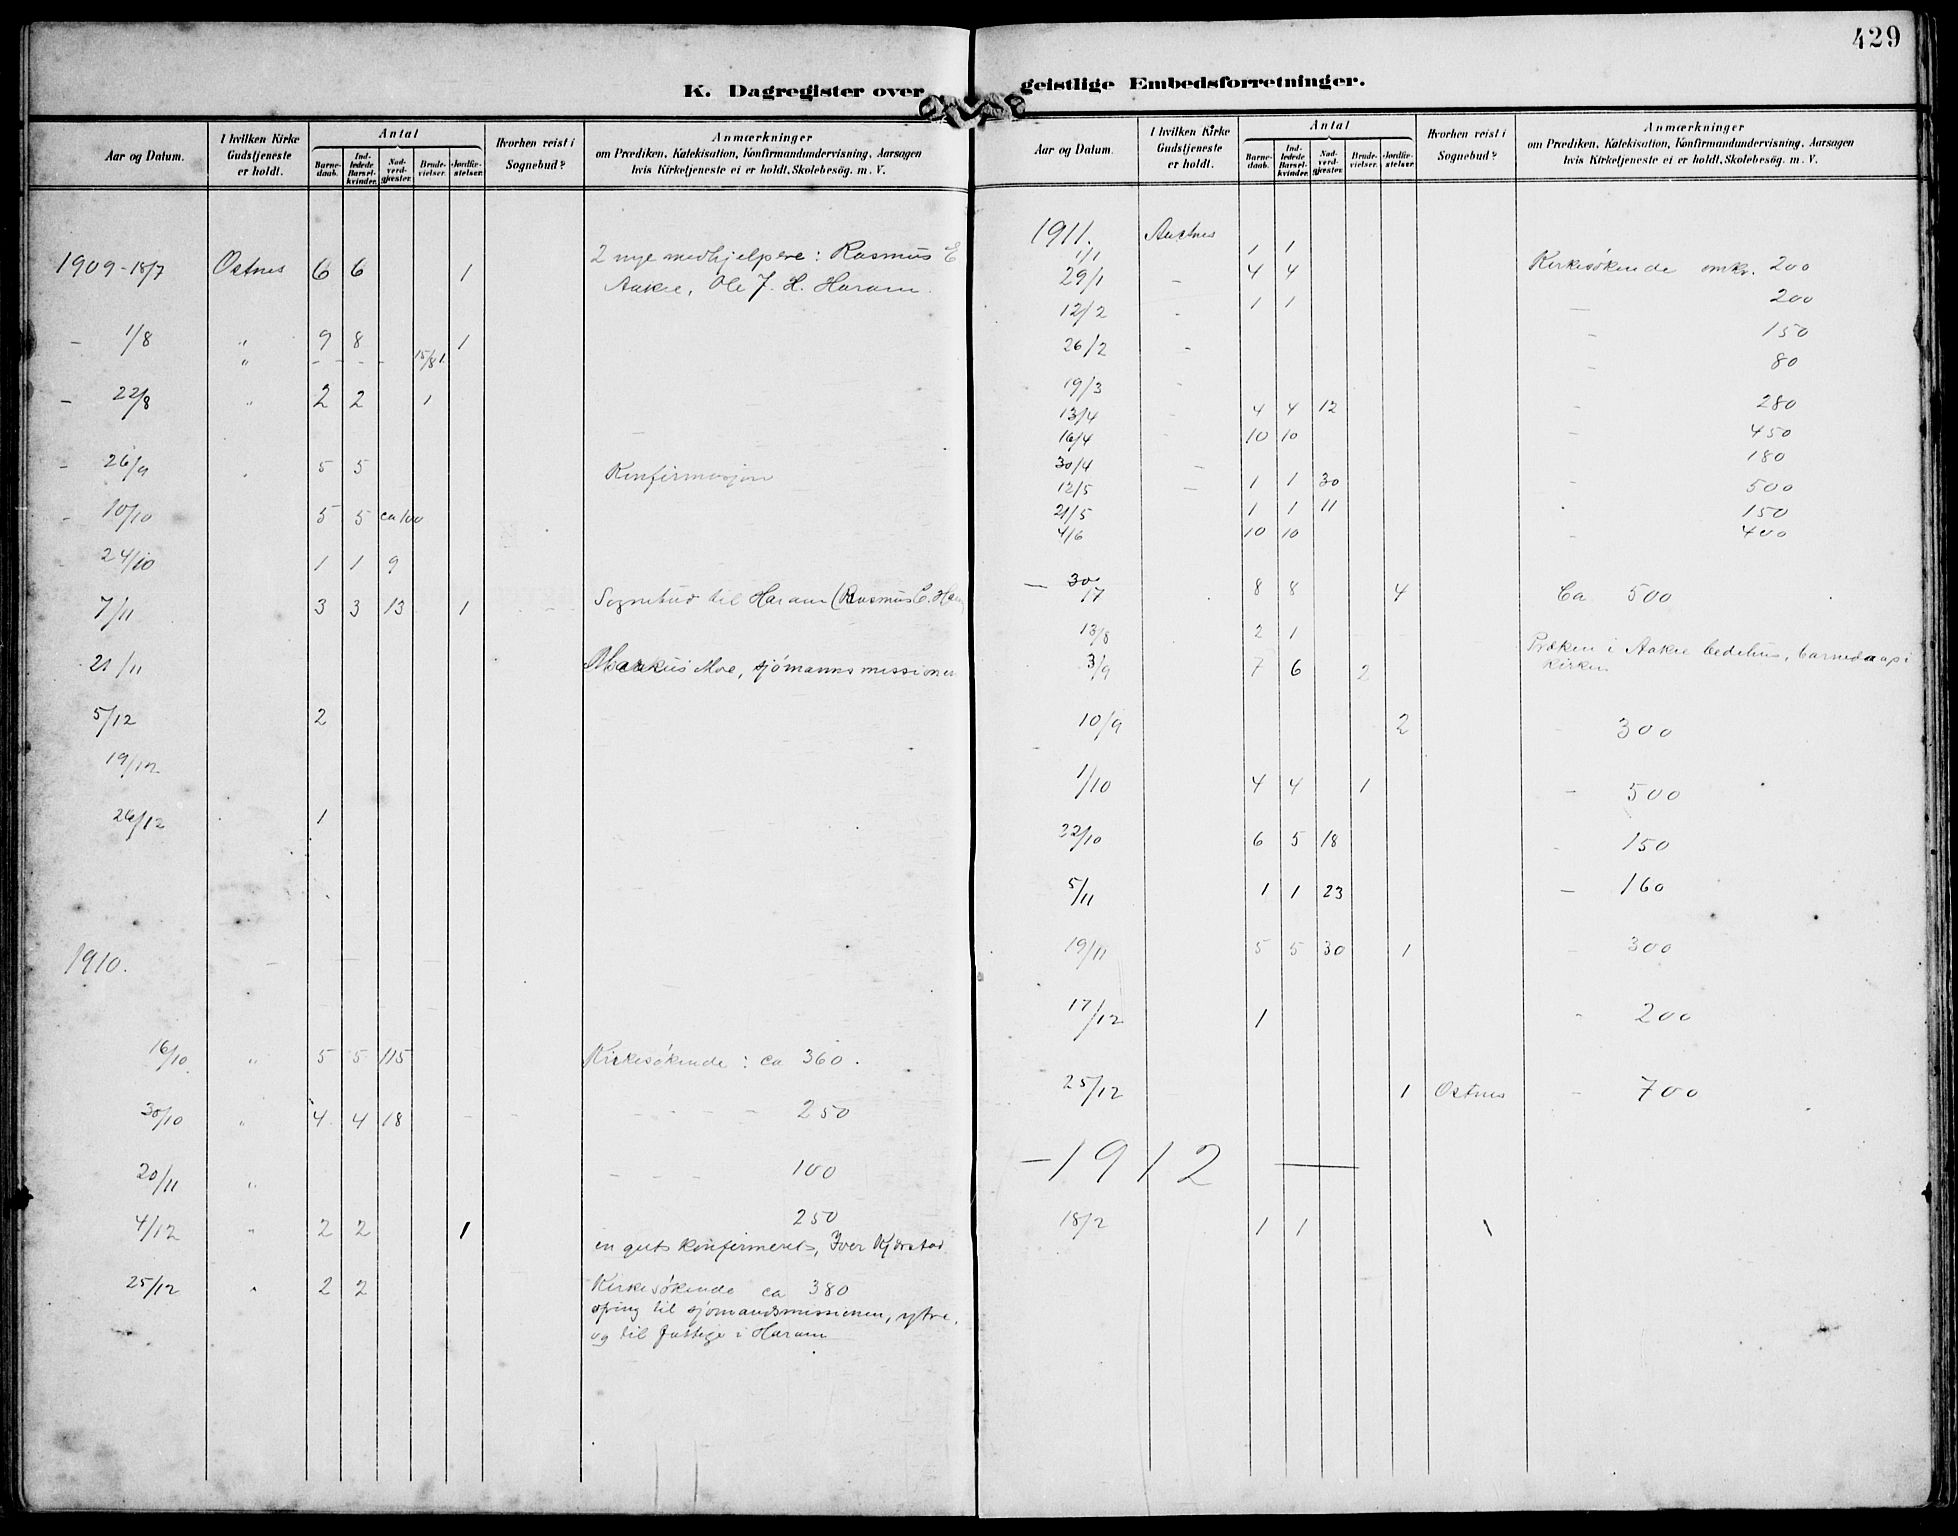 429
K. Dagregister over geistlige Embedsforretninger.
Aar og Datum. I hvilken Kirke Gudstjeneste er holdt. Antal Barnedaab. Indledede Barselkvinder. Nadverdgjæster. Brudevielser. Jordfæstelser. Hvorhen reist i Sognebud? Anmærkninger om Prædiken, Katekisation, Konfirmandundervisning, Aarsagen hvis Kirketjeneste ei er holdt, Skolebesøg. m. V.
1909 - 18/7 Ostnes 6 6 1 2 nye medhjelpere: Rasmus E
Aakre, Ole J. H. Haram.
- 1/8 " 9 8 1
" - - - - 15/8 1.
- 22/8 " 2 2 1
- 26/9 " 5 5 Konfirmasjon
- 10/10 5 5 ca 100
24/10 1 1 9
7/11 3 3 13 1 Sognebud til Haram (Rasmus E. Ham
21/11 Markus Moe, sjömannsmissionen
5/12 2
19/12
26/12 1
1910.
16/10 " 5 5 115 Kirkesökende: ca 360.
30/10 " 4 4 18 - - - - 250
20/11 " - - - 100
4/12 " 2 2 1 250
en gut konfirmeret, Iver Kjörstad
25/12 " 2 2 Kirkesökende ca 380
ofring til sjömandsmissionen, ytre,
og til fattige i Haram
Aar og Datum. I hvilken Kirke Gudstjeneste er holdt. Antal Barnedaab. Indledede Barselkvinder. Nadverdgjæster. Brudevielser. Jordfæstelser. Hvorhen reist i Sognebud? Anmærkninger om Prædiken, Katekisation, Konfirmandundervisning, Aarsagen hvis Kirketjeneste ei er holdt, Skolebesøg. m. V.
1911. Austnes
1/1 1 1 Kirkesökende omkr. 200
29/1 - 4 4 - 200
12/2 - 1 1 - 150
26/2 - - 80
19/3 - - 280
13/4 4 4 12 - 450
16/4 10 10 180
30/4 - 1 1 30 - 500
12/5 - 1 1 11 150
21/5 10 10 - 400
4/6
- 30/7 8 8 4 Ca 500
13/8 2 1 Præken i Aakre bedehus, barnedaap i
kirken
3/9 7 6 2
10/9 2 - 300
1/10 4 4 1 - 500
22/10 6 5 18 - 150
5/11 1 1 23 - 160
19/11 5 5 30 1 - 300
17/12 1 - 200
25/12 1 Ostnes - 700
- 1912
18/2 1 1 1